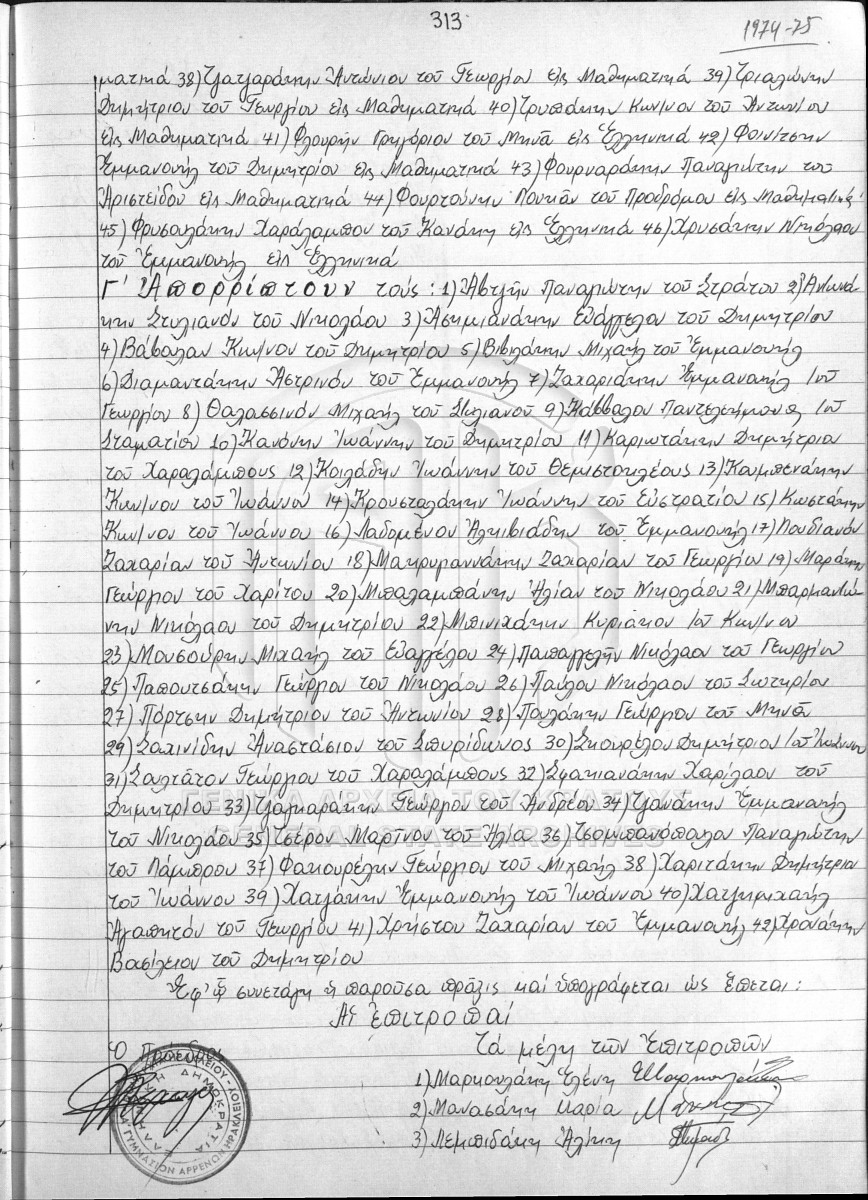 313
1974-75
ματικά 38) Τζατζαράκην Ἀντώνιον τοῦ Γεωργίου εἰς Μαθηματικά 39) Τριαλώνην
Δημήτριον τοῦ Γεωργίου εἰς Μαθηματικά 40) Τρυπάκην Κων/νον τοῦ Ἀντωνίου
εἰς Μαθηματικά 41) Φλουρῆν Γρηγόριον τοῦ Μηνᾶ εἰς Ἑλληνικά 42) Φοινίτσην
Ἐμμανουήλ τοῦ Δημητρίου εἰς Μαθηματικά 43) Φουρναράκην Παναγιώτην του
Ἀριστείδου εἰς Μαθηματικά 44) Φουρτούνην Λουκᾶν τοῦ Προδρόμου εἰς Μαθηματικά
45) Φρυσαλάκην Χαράλαμπον τοῦ Κανάκη εἰς Ἑλληνικά 46) Χρυσάκην Νικόλαον
τοῦ Ἐμμανουήλ εἰς Ἑλληνικά
Γ' Ἀπορρίπτουν τούς: 1) Παναγιώτην τοῦ Στράτου 2) Ἀντωνά-
κην Στυλιανόν τοῦ Νικολάου 3) Ἀσημιανάκην Εὐάγγελον τοῦ Δημητρίου
4) Βάβαλαν Κων/νον τοῦ Δημητρίου 5) Βιβιλάκην Μιχαήλ τοῦ Ἐμμανουήλ
6) Διαμαντάκην Ἀστρινόν τοῦ Ἐμμανουήλ 7) Ζαχαριάκην Ἐμμανουήλ τοῦ
Γεωργίου 8) Θαλασσινόν Μιχαήλ τοῦ Στυλιανοῦ 9) Κάββαλον Παντελεήμονα τοῦ
Σταματίου 10) Κανόνην Ἰωάννην τοῦ Δημητρίου 11) Καριωτάκην Δημήτριον
τοῦ Χαραλάμπους 12) Κοιλάδην Ἰωάννην τοῦ Θεμιστοκλέους 13) Κουμπενάκην
Κων/νον τοῦ Ἰωάννου 14) Κρουσταλάκην Ἰωάννην τοῦ Εὐστρατίου 15) Κωστάκην
Κων/νον τοῦ Ἰωάννου 16) Λαδομένον Ἀλκιβιάδην τοῦ Ἐμμανουήλ 17) Λουδιανόν
Ζαχαρίαν τοῦ Ἀντωνίου 18) Μακρυγιαννάκην Ζαχαρίαν τοῦ Γεωργίου 19) Μαράκην
Γεώργιον τοῦ Χαρίτου 20) Μπαλαμπάνην Ἠλίαν τοῦ Νικολάου 21) Μπαρμαντώ-
νην Νικόλαον τοῦ Δημητρίου 22) Μπινιχάκην Κυριάκον τοῦ Κων/νου
23) Μουσούρην Μιχαήλ τοῦ Εὐαγγέλου 24) Παπαγγελῆν Νικόλαον τοῦ Γεωργίου
25) Παπουτσάκην Γεώργιον τοῦ Νικολάου 26) Παύλου Νικόλαον τοῦ Σωτηρίου
27) Πόρτσην Δημήτριον τοῦ Ἀντωνίου 28) Πουλάκην Γεώργιον τοῦ Μηνᾶ
29) Σαχινίδην Ἀναστάσιον τοῦ Σπυρίδωνος 30) Σκουρέλον Δημήτριον τοῦ Ἰωάννου
31) Σαλτᾶτον Γεώργιον τοῦ Χαραλάμπους 32) Σφακιανάκην Χαρίλαον τοῦ
Δημητρίου 33) Τζαγκαράκην Γεώργιον τοῦ Ἀνδρέου 34) Τζανάκην Ἐμμανουήλ
τοῦ Νικολάου 35) Τσέρον Μαρτῖνον τοῦ Ἠλία 36) Τσομπανόπουλον Παναγιώτην
τοῦ Λάμπρου 37) Φακουρέλην Γεώργιον τοῦ Μιχαήλ 38) Χαριτάκην Δημήτριον
τοῦ Ἰωάννου 39) Χατζάκην Ἐμμανουήλ τοῦ Ἰωάννου 40) Χατζημιχαήλ
Ἀγαπητόν τοῦ Γεωργίου 41) Χρήστου Ζαχαρίαν τοῦ Ἐμμανουήλ 42) Χρονάκην
Βασίλειον τοῦ Δημητρίου
Ἐφ' ᾧ συνετάγη ἡ παροῦσα πρᾶξις καί ὑπογράφεται ὡς ἕπεται:
Αἱ ἐπιτροπαί
Ὁ Πρόεδρος
Τά μέλη τῶν Ἐπιτροπῶν
1) Μαρκουλάκη Ἑλένη
2) Μανασάκη Μαρία
3) Λεμπιδάκη Ἀλίκη
ΕΛΛΗΝΙΚΗ ΔΗΜΟΚΡΑΤΙΑ
ΓΥΜΝΑΣΙΟΝ ΑΡΡΕΝΩΝ ΗΡΑΚΛΕΙΟΥ
ΓΕΝΙΚΑ ΑΡΧΕΙΑ ΤΟΥ ΚΡΑΤΟΥΣ
GENERAL STATE ARCHIVES